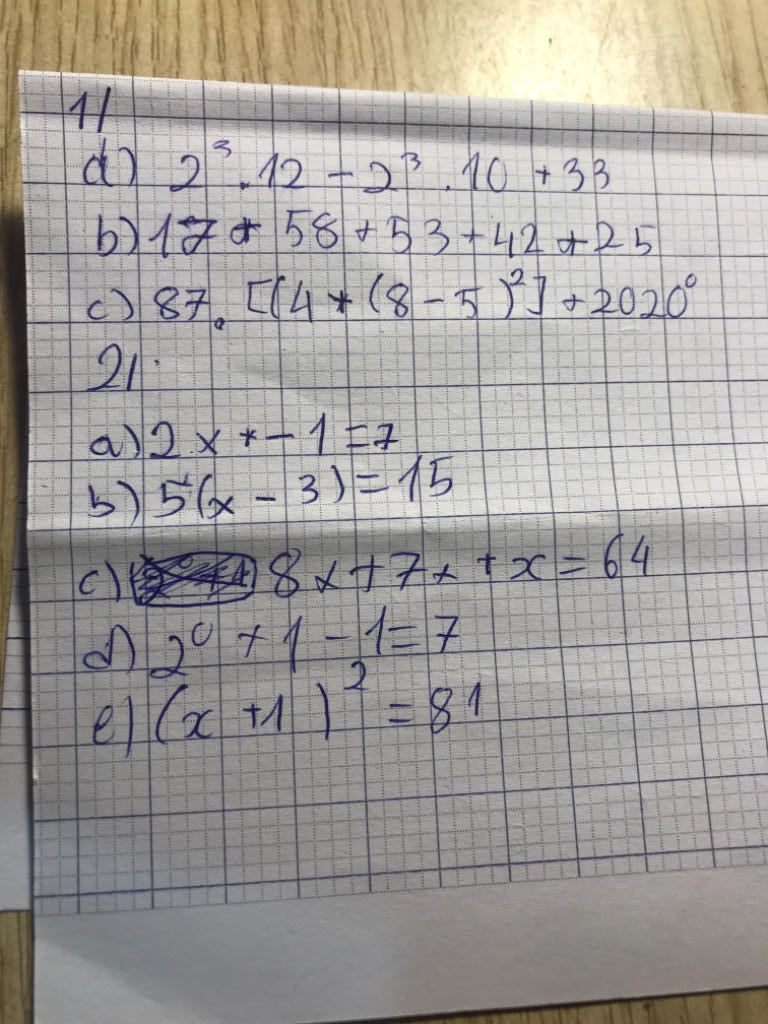 1/
a) 2³.12 - 2³.10 + 33
b) 17 + 58 + 53 + 42 + 25
c) 87.[(4 + (8 - 5)²] + 2020⁰
2/.
a) 2x + - 1 = 7
b) 5(x - 3) = 15
c) 8x + 7x + x = 64
d) 2⁰ + 1 - 1 = 7
e) (x + 1)² = 81